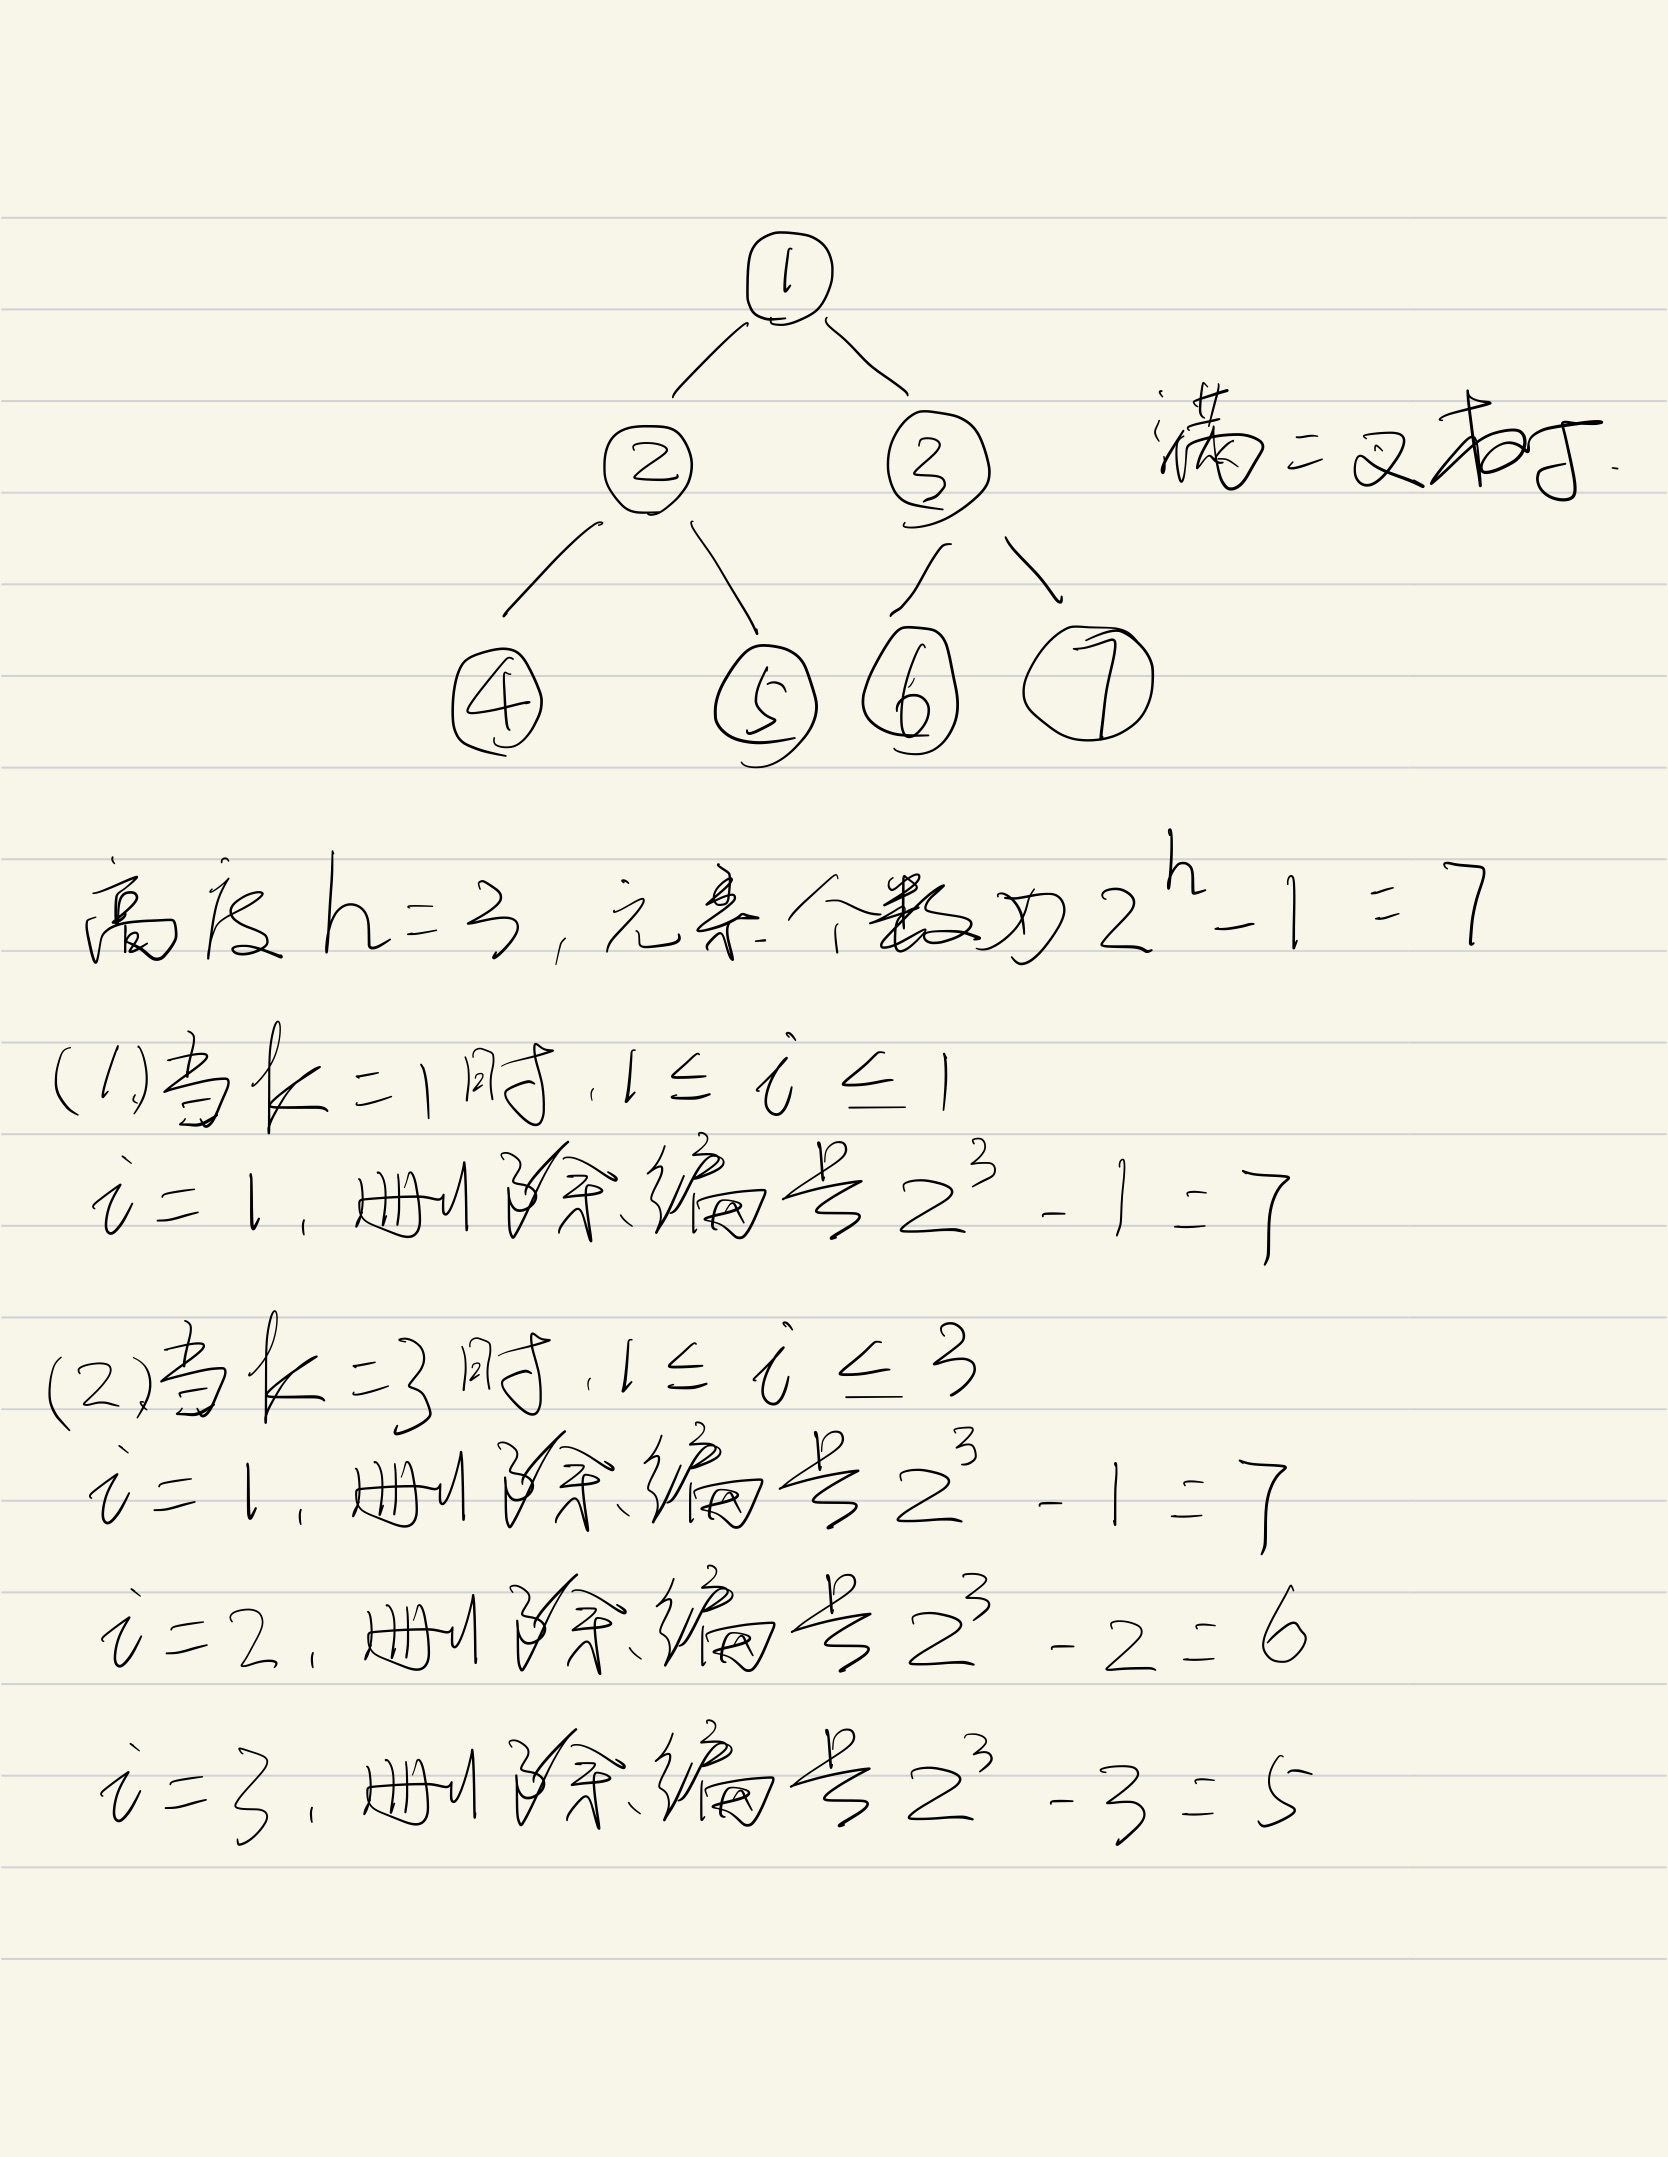 1
2 3 满二叉树.
4 5 6 7
高度h=3,元素个数为2^h-1=7
(1)当k=1时,1≤i≤1
i=1,删除编号2^3-1=7
(2)当k=3时,1≤i≤3
i=1,删除编号2^3-1=7
i=2,删除编号2^3-2=6
i=3,删除编号2^3-3=5